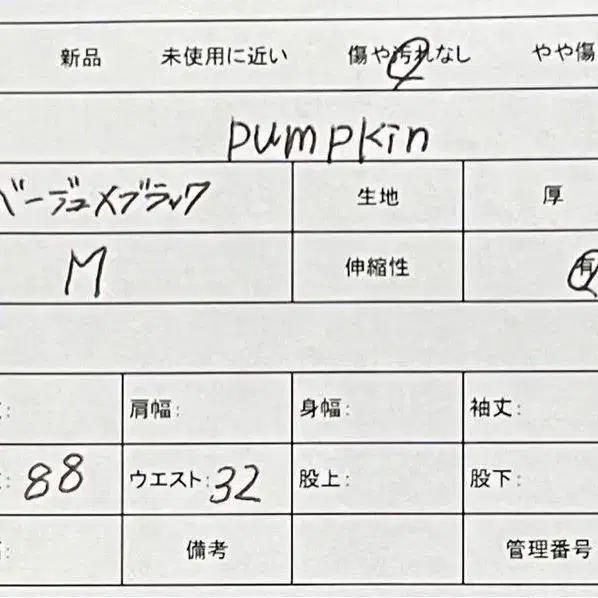 新品 未使用に近い 傷や汚れなし やや傷
pumpkin
ベージュ×ブラック 生地 厚
M 伸縮性 有
肩幅: 身幅: 袖丈:
88 ウエスト:32 股上: 股下:
備考 管理番号